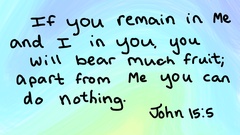 If you remain in Me
and I in you, you
will bear much fruit;
apart from Me you can
do nothing.
John 15:5